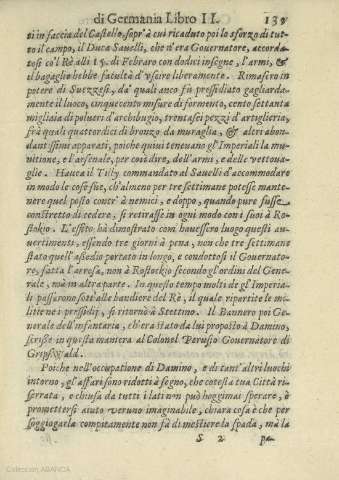 di Germania Libro II. 139
ti in faccia del Castello, sopr'à cui ricaduto poi lo sforzo di tut-
to il campo, il Duca Sauelli, che n'era Gouernatore, accorda-
tosi co'l Rè alli 15. di Febraro con dodici insegne, l'armi, &
il bagaglio hebbe facultà d'vscire liberamente. Rimasero in
potere di Suezzesi, da' quali anco fù pressidiato gagliarda-
mente il luoco, cinquecento misure di formento, cento settanta
migliaia di poluere d'archibugio, trentasei pezzi d'artiglieria,
frà quali quattordici di bronzo da muraglia, & altri abon-
dantissimi apparati, poiche quiui teneuano gl'Imperiali la mu-
nitione, e l'arsenale, per così dire, dell'armi, e delle vettoua-
glie. Haueа il Tilly commandato al Sauelli d'accommodare
in modo le cose sue, ch'almeno per tre settimane potesse mante-
nere quel posto contr'à nemici, e doppo, quando pure fusse
constretto di cedere, si retirasse in ogni modo con i suoi à Ro-
stokio. L'effetto hà dimostrato com hauessero luogo questi au-
uertimenti, essendo tre giorni à pena, non che tre settimane
stato quell'assedio portato in longo, e condottosi il Gouernato-
re, fatta l'aresa, non à Rostockio secondo gl'ordini del Gene-
rale, mà in altra parte. In questo tempo molti de gl'Imperia-
li passarono sott'alle bandiere del Rè, il quale ripartite le mi-
litie ne i pressidij, si ritornò à Stettino. Il Bannero poi Ge-
nerale dell'infantaria, ch'era stato da lui proposto à Damino,
scrisse in questa maniera al Colonel Perusio Gouernatore di
Gripswald.
Poiche nell'occupatione di Damino, e di tant'altri luochi
intorno, gl'affari sono ridotti à segno, che cotesta tua Città ri-
serrata, e chiusa da tutti i lati non può hoggimai sperare, è
promettersi aiuto veruno imaginabile, chiara cosa è che per
soggiogarla compitamente non fà di mestiere la spada, mà la
S 2 pa-
Colección ABANCA